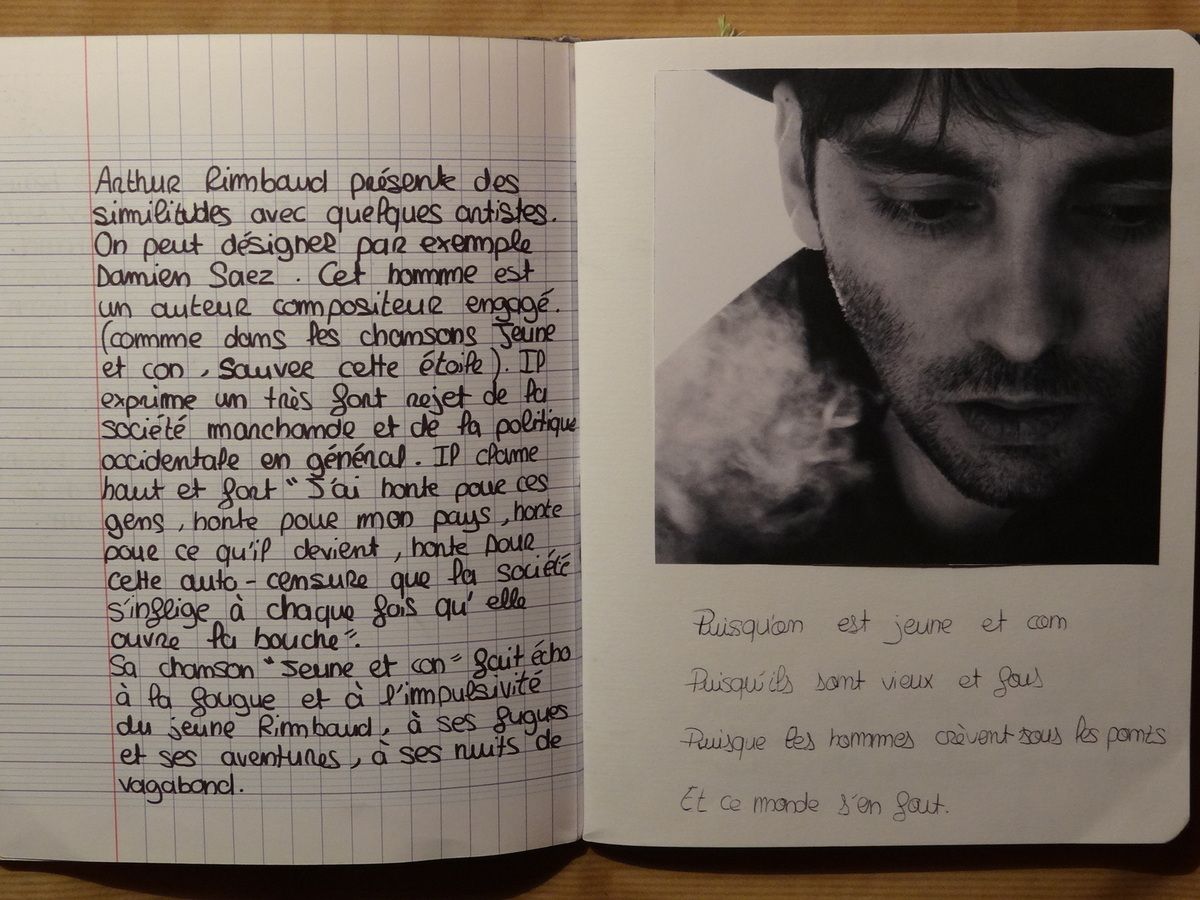 Arthur Rimbaud présente des
similitudes avec quelques artistes.
On peut désigner par exemple
Damien Saez. Cet homme est
un auteur compositeur engagé.
(comme dans les chansons Jeune
et con, Sauver cette étoile). Il
exprime un très fort rejet de la
société marchande et de la politique
occidentale en général. Il clame
haut et fort "J'ai honte pour ces
gens, honte pour mon pays, honte
pour ce qu'il devient, honte pour
cette auto-censure que la société
s'inflige à chaque fois qu'elle
ouvre la bouche".
Sa chanson "Jeune et con" fait écho
à la fougue et à l'impulsivité
du jeune Rimbaud, à ses fugues
et ses aventures, à ses nuits de
vagabond.
Puisqu'on est jeune et con
Puisqu'ils sont vieux et fous
Puisque les hommes crèvent sous les ponts
Et ce monde s'en fout.